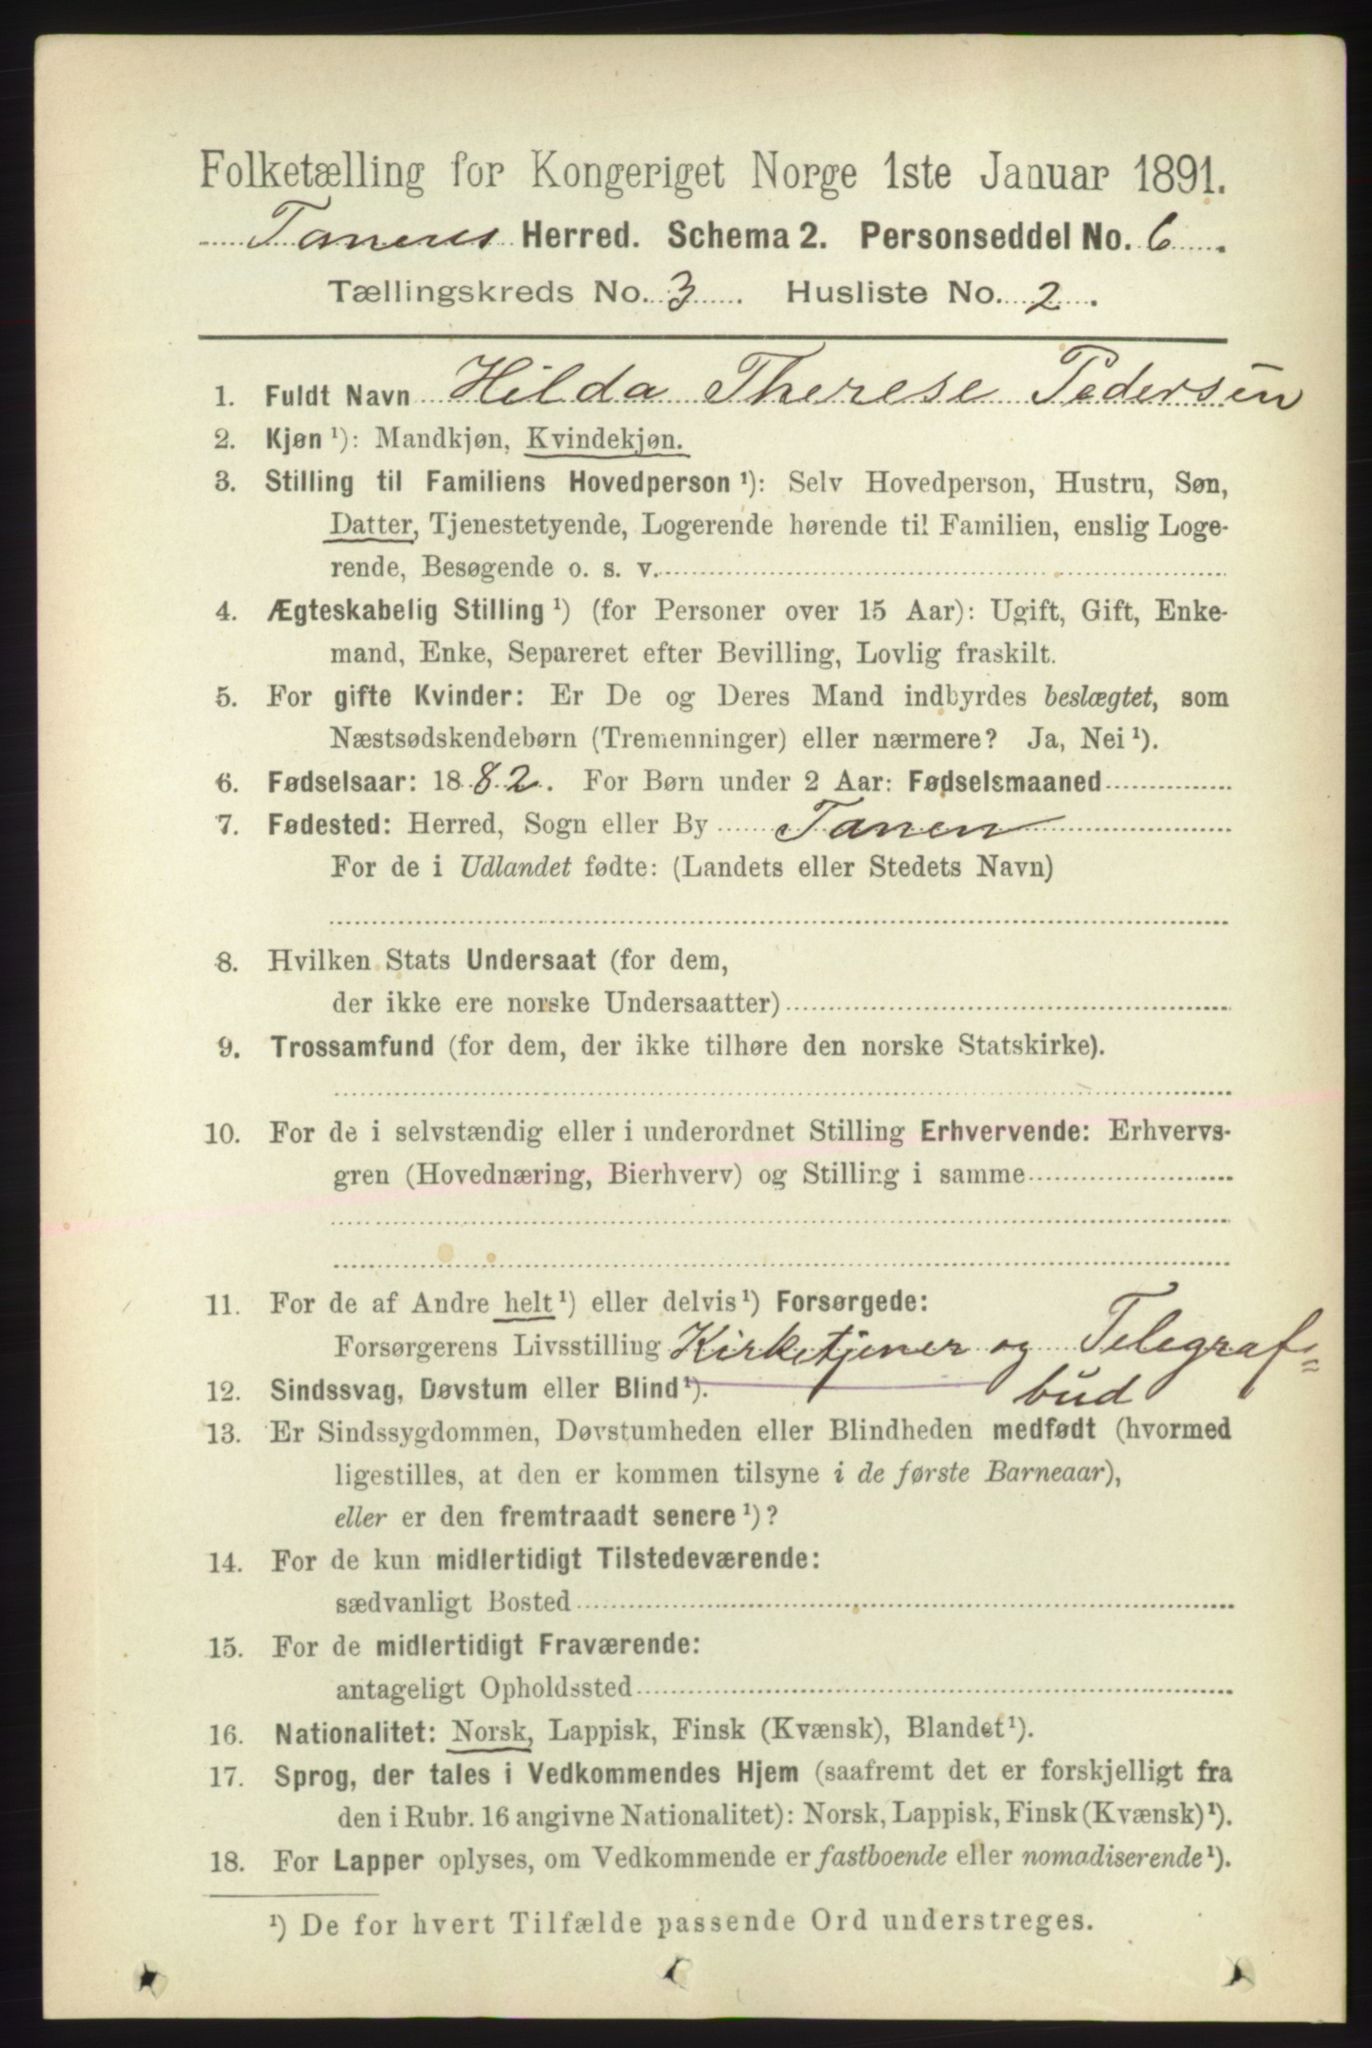 Folketælling for Kongeriget Norge 1ste Januar 1891.
Tanens Herred. Schema 2. Personseddel No. 6.
Tællingskreds No. 3. Husliste No. 2.
1. Fuldt Navn Hilda Therese Pedersen
2. Kjøn ¹): Mandkjøn, Kvindekjøn.
3. Stilling til Familiens Hovedperson ¹): Selv Hovedperson, Hustru, Søn,
Datter, Tjenestetyende, Logerende hørende til Familien, enslig Loge-
rende, Besøgende o. s. v.
4. Ægteskabelig Stilling ¹) (for Personer over 15 Aar): Ugift, Gift, Enke-
mand, Enke, Separeret efter Bevilling, Lovlig fraskilt.
5. For gifte Kvinder: Er De og Deres Mand indbyrdes beslægtet, som
Næstsødskendebørn (Tremenninger) eller nærmere? Ja, Nei ¹).
6. Fødselsaar: 1882. For Børn under 2 Aar: Fødselsmaaned
7. Fødested: Herred, Sogn eller By Tanen
For de i Udlandet fødte: (Landets eller Stedets Navn)
8. Hvilken Stats Undersaat (for dem,
der ikke ere norske Undersaatter)
9. Trossamfund (for dem, der ikke tilhøre den norske Statskirke).
10. For de i selvstændig eller i underordnet Stilling Erhvervende: Erhvervs-
gren (Hovednæring, Bierhverv) og Stilling i samme
11. For de af Andre helt ¹) eller delvis ¹) Forsørgede:
Forsørgerens Livsstilling Kirketjener og Telegraf=
bud
12. Sindssvag, Døvstum eller Blind ¹).
13. Er Sindssygdommen, Døvstumheden eller Blindheden medfødt (hvormed
ligestilles, at den er kommen tilsyne i de første Barneaar),
eller er den fremtraadt senere ¹)?
14. For de kun midlertidigt Tilstedeværende:
sædvanligt Bosted
15. For de midlertidigt Fraværende:
antageligt Opholdssted
16. Nationalitet: Norsk, Lappisk, Finsk (Kvænsk), Blandet ¹).
17. Sprog, der tales i Vedkommendes Hjem (saafremt det er forskjelligt fra
den i Rubr. 16 angivne Nationalitet): Norsk, Lappisk, Finsk (Kvænsk) ¹).
18. For Lapper oplyses, om Vedkommende er fastboende eller nomadiserende ¹).
¹) De for hvert Tilfælde passende Ord understreges.